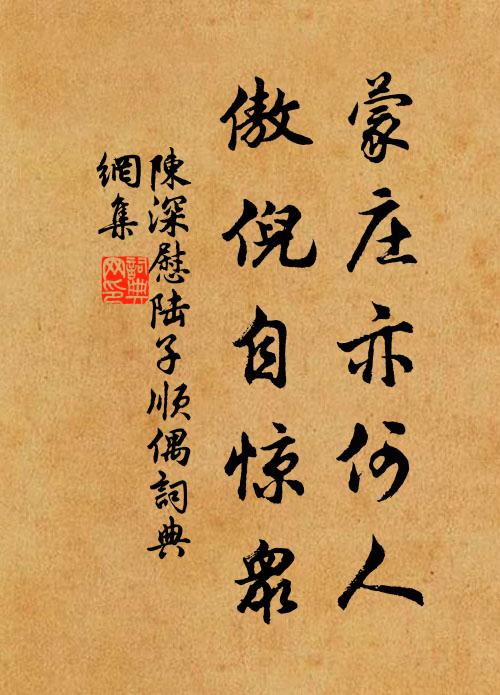 蒙庄亦何人
傲倪自惊眾
陳深慰陆子順偶詞典
網集
詞典
网印